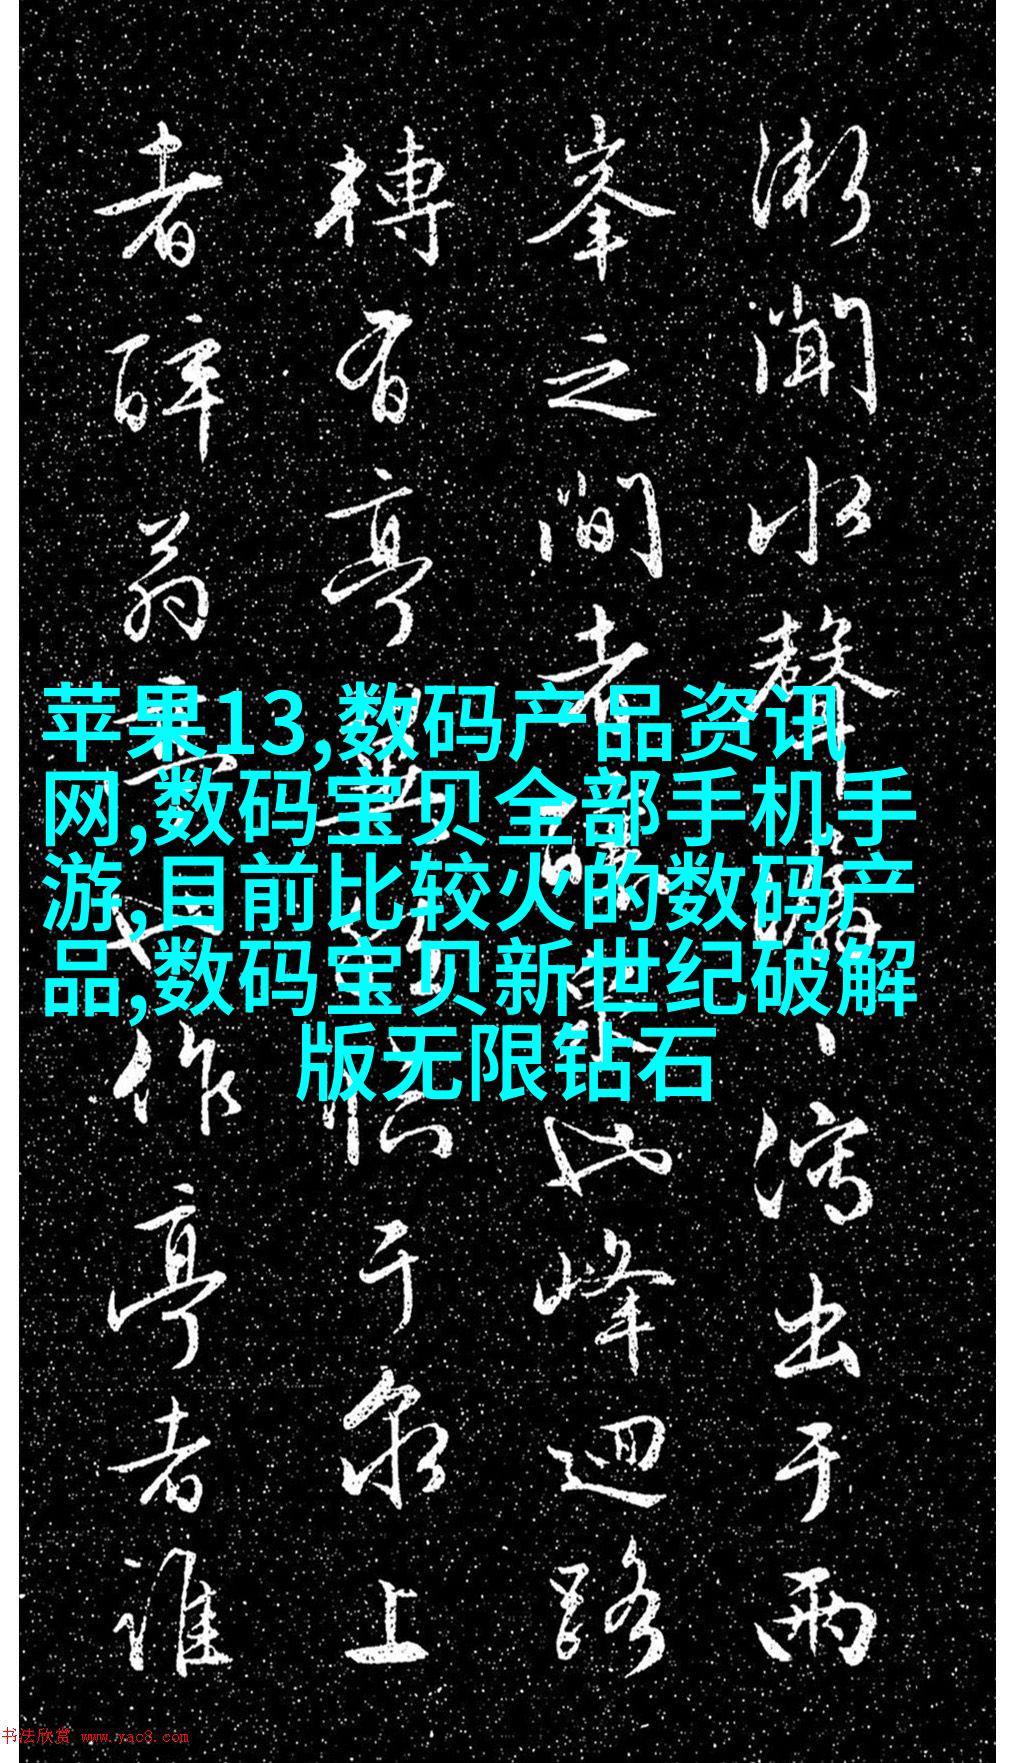 漸聞水聲瀉出于兩
峯之間者也峰迴路
轉有亭于泉上
者醉翁作亭者誰
苹果13,数码产品资讯
网,数码宝贝全部手机手
游,目前比较火的数码产
品,数码宝贝新世纪破解
版无限钻石
书法欣赏 www.yac8.com